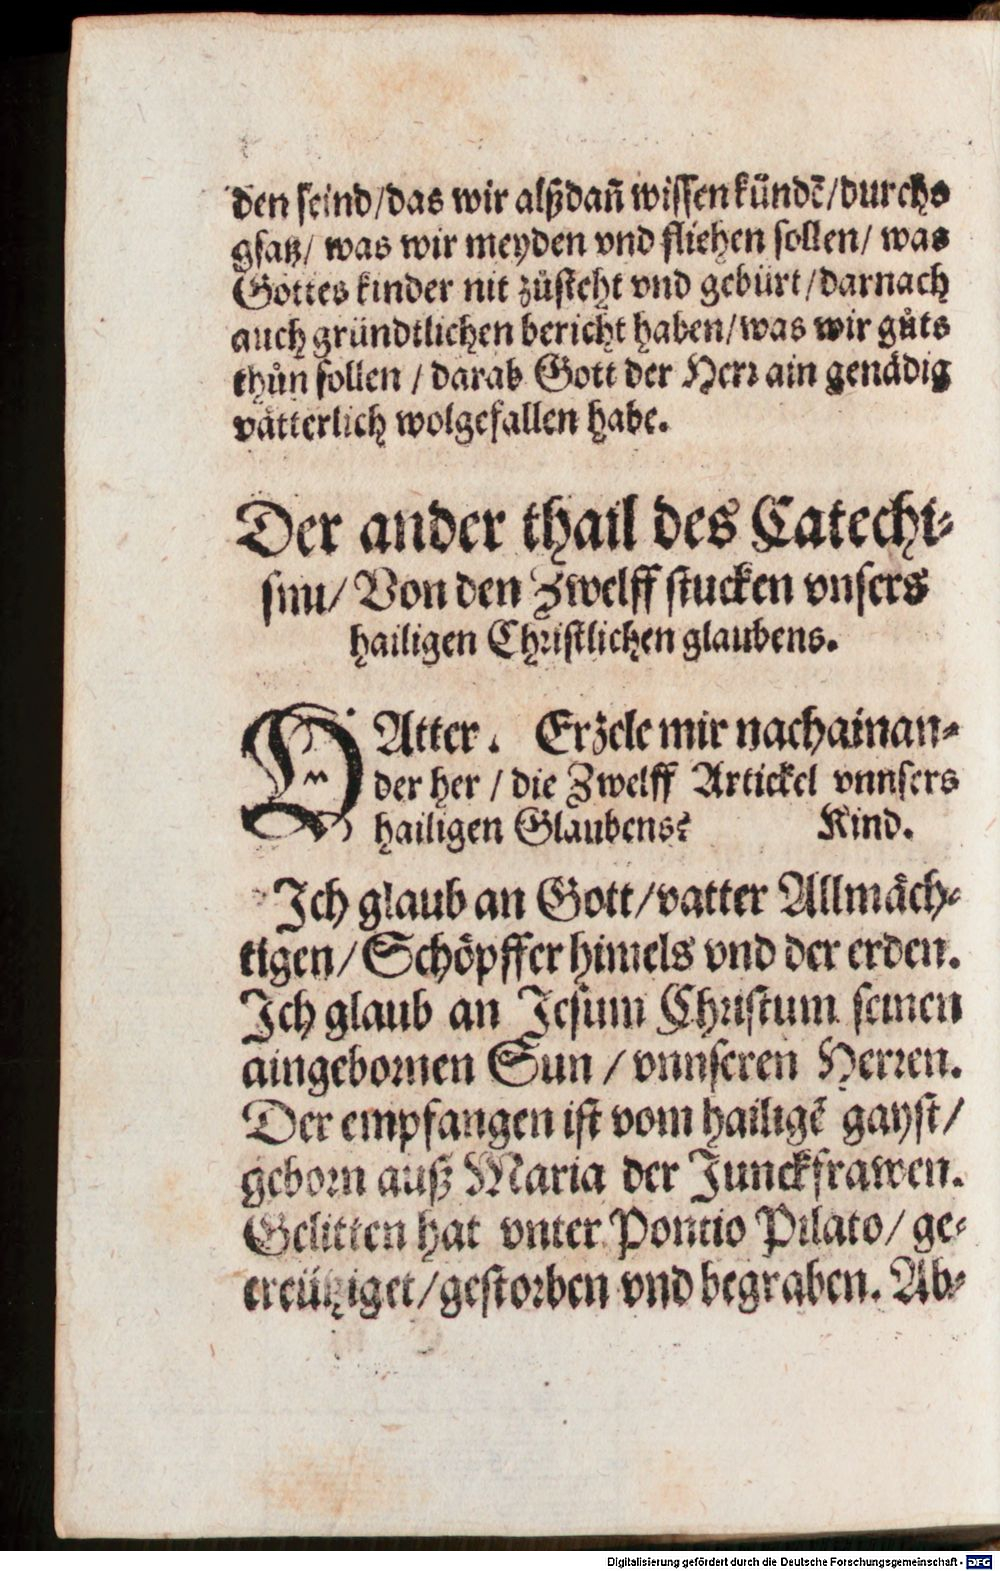 den seind/das wir alßdañ wissen kündẽ/durchs
gsatz/ was wir meyden vnd fliehen sollen/ was
Gottes kinder nit zůsteht vnd gebürt/darnach
auch gründtlichen bericht haben/was wir gůts
thůn sollen / darab Gott der Herr ain genädig
vätterlich wolgefallen habe.
Der ander thail des Catechi-
smi/ Von den Zwelff stucken vnsers
hailigen Christlichen glaubens.
VAtter. Erzele mir nachainan-
der her / die Zwelff Artickel vnnsers
hailigen Glaubens? Kind.
Ich glaub an Gott/vatter Allmäch-
tigen/ Schöpffer himels vnd der erden.
Ich glaub an Jesum Christum seinen
aingebornen Sun / vnnseren Herren.
Der empfangen ist vom hailigẽ gayst/
geborn auß Maria der Junckfrawen.
Gelitten hat vnter Pontio Pilato/ ge-
creütziget/gestorben vnd begraben. Ab-
Digitalisierung gefördert durch die Deutsche Forschungsgemeinschaft - DFG